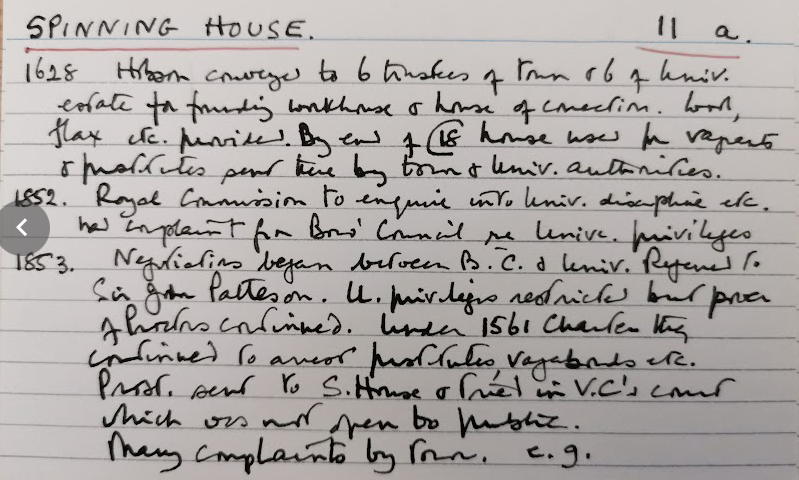 SPINNING HOUSE. 11 a.
1628 Hobson conveyed to 6 trustees of Town & 6 of Univ.
estate for founding workhouse & house of correction. Wool,
flax etc. provided. By end of C18 house used for vagrants
& prostitutes sent there by town & Univ. authorities.
1852. Royal Commission to enquire into Univ. discipline etc.
had complaint from Boro' Council re Univ. privileges
1853. Negotiations began between B.C. & Univ. Referred to
Sir John Patteson. U. privileges restricted but power
of Proctors continued. Under 1561 Charter they
continued to arrest prostitutes, vagabonds etc.
Prost. sent to S.House & tried in V.C's court
which was not open to public.
Many complaints by Town. e.g.